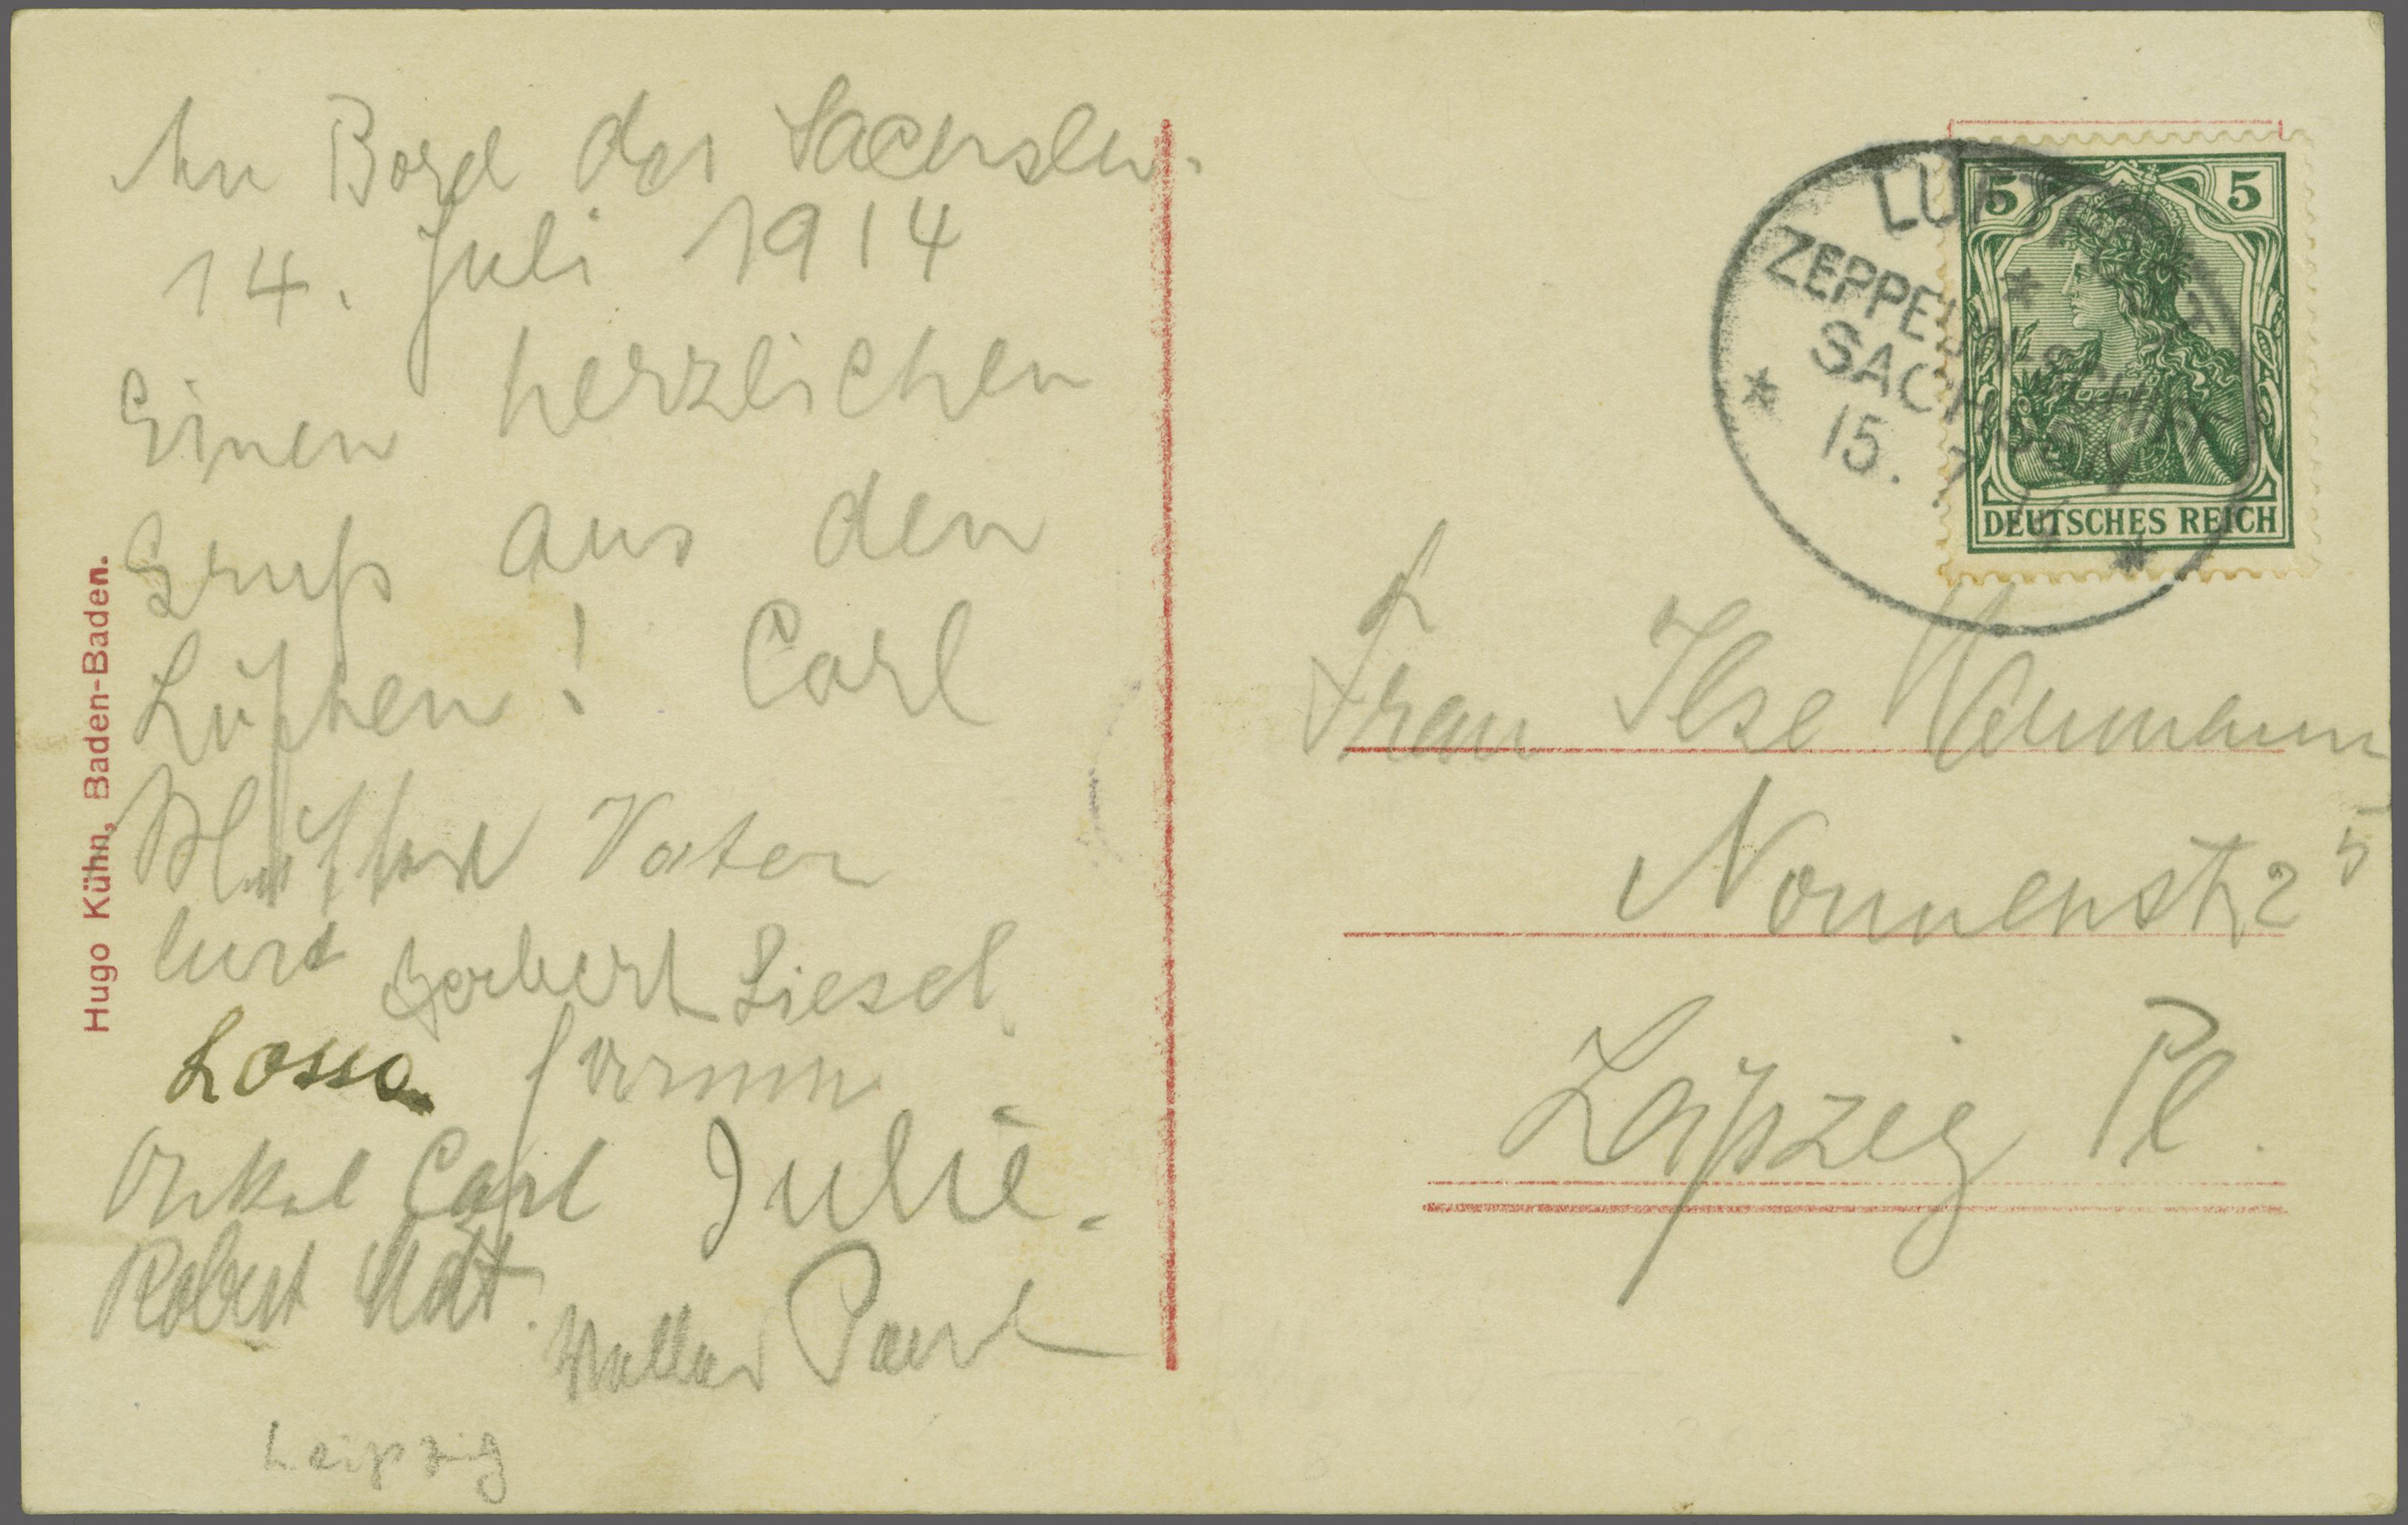 An Bord der Sachsen.
14. Juli 1914
Einen herzlichen
Gruß aus den
Lüften! Carl
Vater
Curt Herbert Liesel
Lossa
Onkel Carl Julie.
Robert
Walter Paul
Leipzig
Hugo Kühn, Baden-Baden.
LUFTPOST
ZEPPELIN-SCHIFF
SACHSEN
15. 7. 14
5 5
DEUTSCHES REICH
Frau Ilse
Nonnenstr 25
Leipzig Pl.